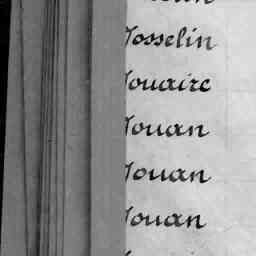 Josselin
Jouaire
Jouan
Jouan
Jouan